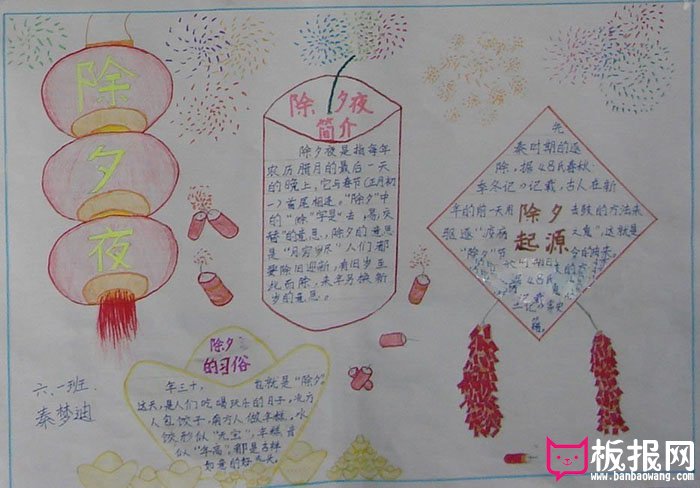 除
夕
夜
除夕夜
简介
除夕夜是指每年
农历腊月的最后一天
的晚上，它与春节(正月初
一)首尾相连。“除夕”中
的“除”字是“去，易，交
替”的意思，除夕的意思
是“月穷岁尽”人们都
要除旧迎新，有旧岁至
此而除，来年另换新
岁的意思。
先
秦时期的逐
除，据《吕氏春秋·
季冬记》记载，古人在新
年的前一天用
击鼓的方法来
驱逐“疫疠
之鬼”，这就是
“除夕”节
的由来。
除夕
起源
记载
除夕
的习俗
年三十，
也就是“除夕”
这天，是人们吃喝玩乐的日子，北方
人包饺子，南方人做年糕，水
饺形似“元宝”，年糕音
似“年高”，都是吉祥
如意的好兆头。
六、一班
秦梦迪
板报网
www.banbaowang.com